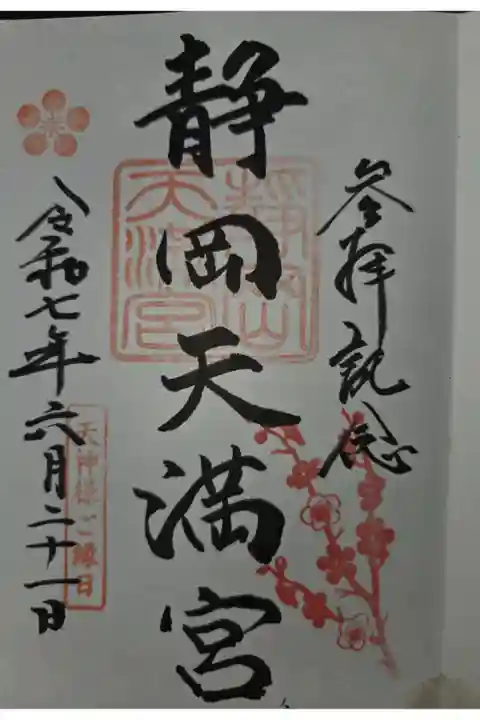 参拝記念
静岡天満宮
令和七年六月二十一日
天神様ご縁日